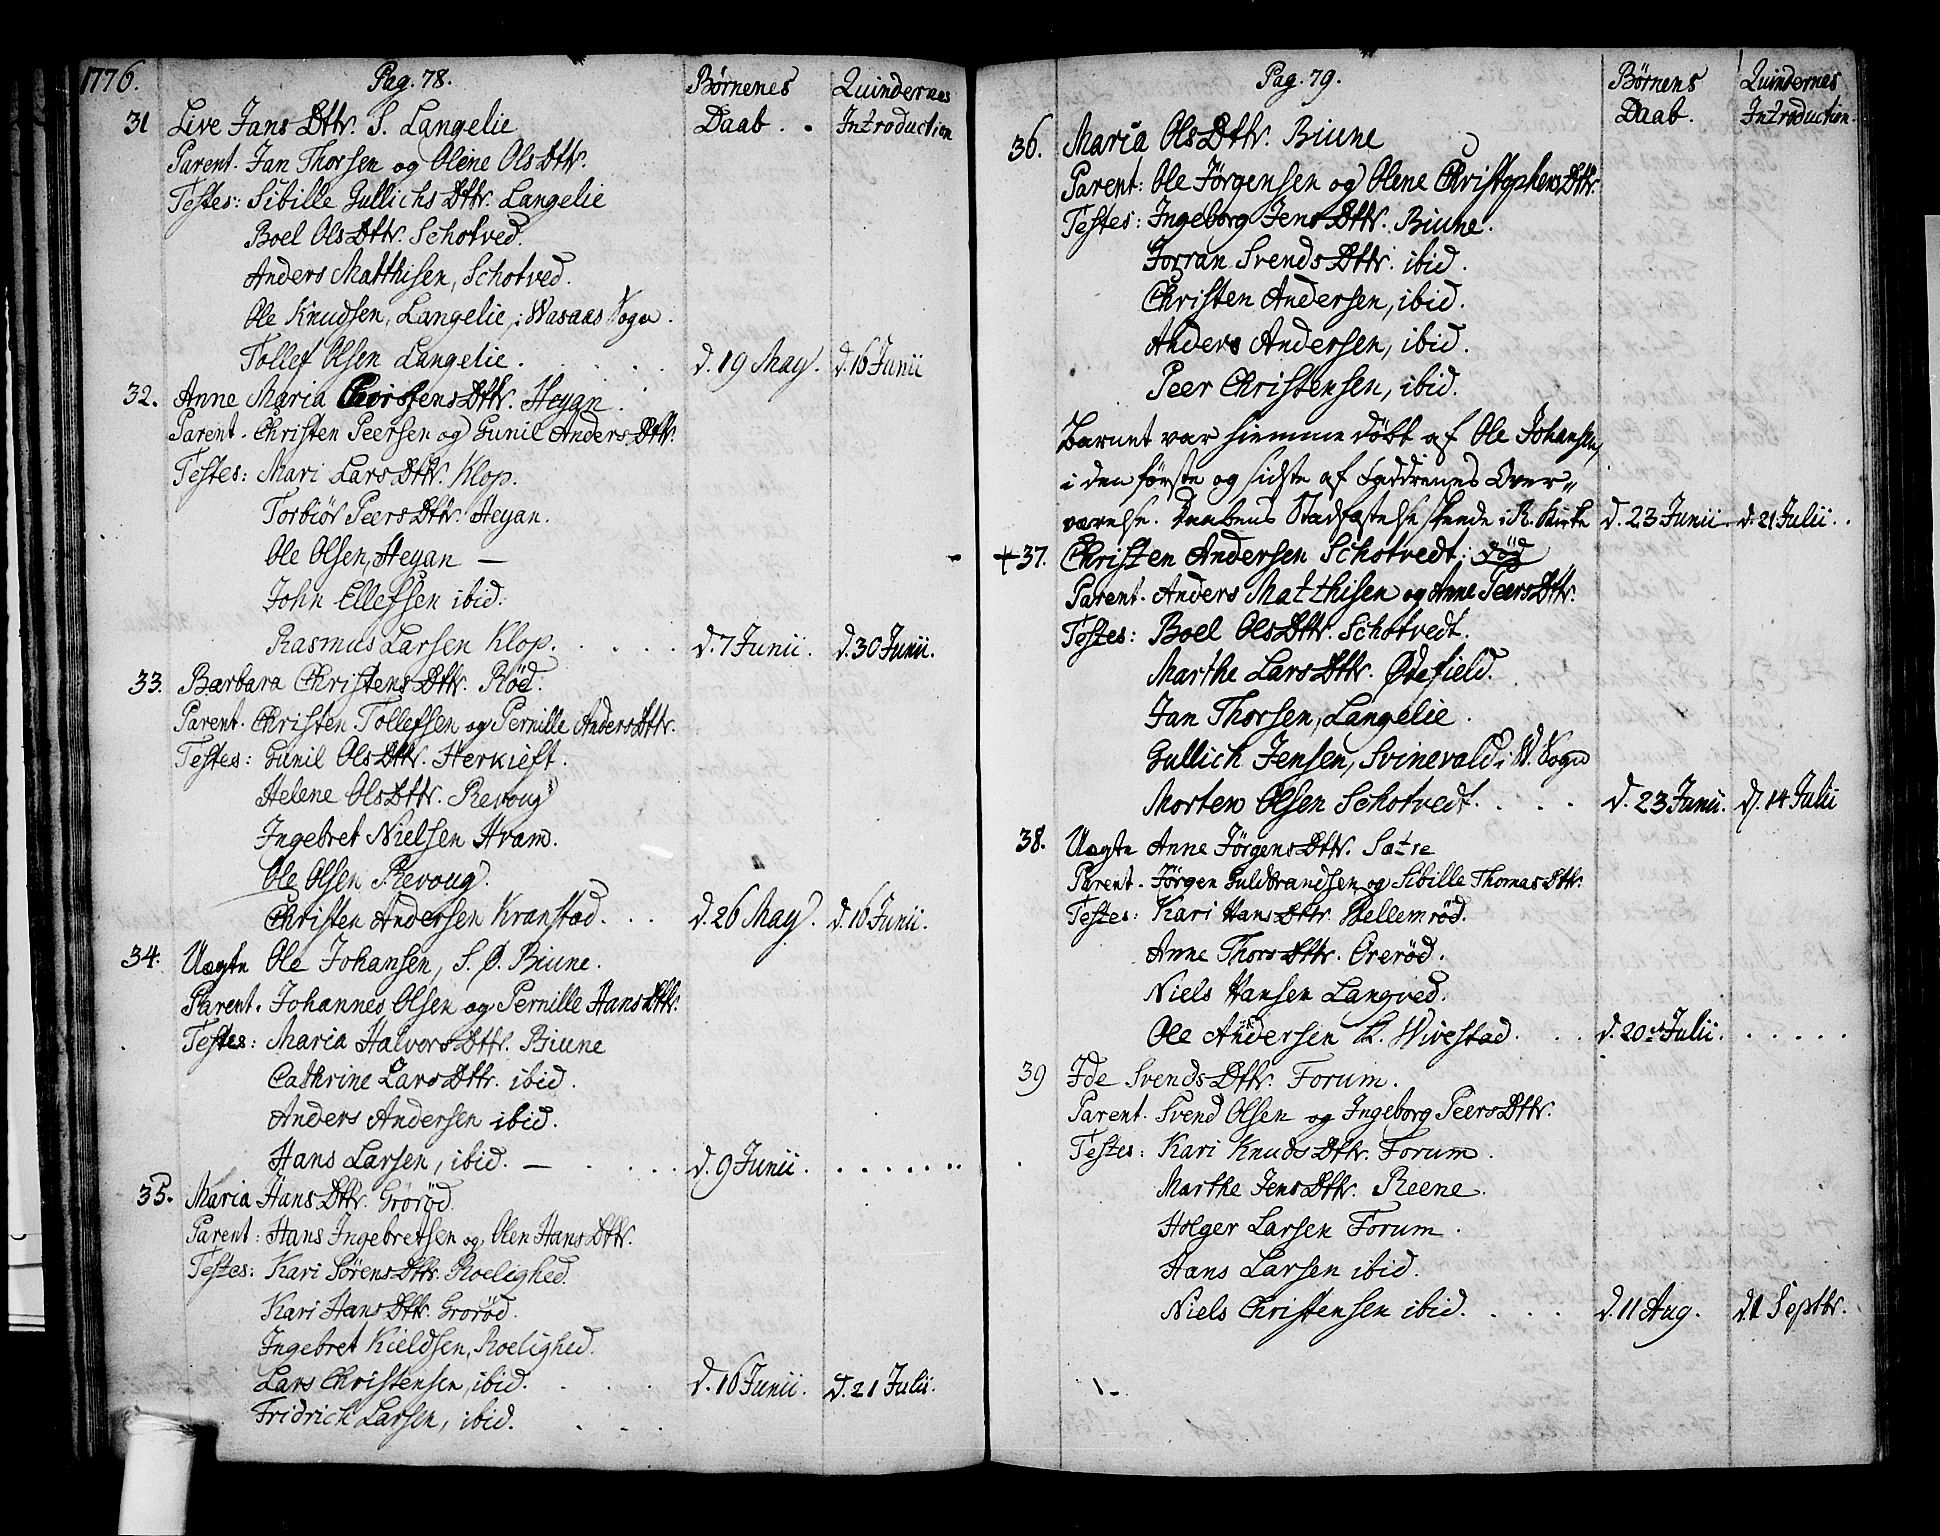 1776.
Pag. 78.
Børnenes
Daab . .
Quindernes
Introduction
31 Live Jans Dttr. S. Langelie
Parent. Jan Thorsen og Olene Ols Dttr.
Testes: Sibille Gullichs Dttr. Langelie
Boel Ols Dttr. Schotved.
Anders Matthisen, Schotved.
Ole Knudsen, Langelie, i Wasaas Sogn.
Tollef Olsen Langelie . . . . d. 19 May. d. 16 Junii
32. Anne Maria Christens Dttr. Heyan.
Parent. Christen Peersen og Gunil Anders Dttr.
Testes: Mari Lars Dttr. Klop.
Torbiør Peers Dttr. Heyan.
Ole Olsen, Heyan —
John Ellefsen ibid:
Rasmus Larsen Klop. . . . . d. 7 Junii. d. 30 Junii.
33. Barbara Christens Dttr. Röd.
Parent. Christen Tollefsen og Pernille Anders Dttr.
Testes: Gunil Ols Dttr. Herkieft.
Helene Ols Dttr. Revoug
Ingebret Nielsen Hvam.
Ole Olsen Revoug.
Christen Andersen Kranstad. . . d. 26 May. d. 16 Junii.
34. Uægte Ole Johansen, S. Ø. Biune.
Parent. Johannes Olsen og Pernille Hans Dttr.
Testes: Maria Halvors Dttr. Biune
Cathrine Lars Dttr. ibid.
Anders Andersen ibid.
Hans Larsen, ibid. — . . . . d. 9 Junii. . . . . . . .
35. Maria Hans Dttr. Grørød.
Parent: Hans Ingebretsen og Olen Hans Dttr.
Testes: Kari Sørens Dttr. Roelighed.
Kari Hans Dttr. Grorød.
Ingebret Kieldsen, Roelighed.
Lars Christensen, ibid. . . . d. 16 Junii. d. 21 Julii.
Fridrich Larsen, ibid. . . .
Pag. 79.
Børnens
Daab.
Quindernes
Introduction.
36. Maria Ols Dttr. Biune
Parent: Ole Jørgensen og Olene Christophers Dttr.
Testes: Ingeborg Jens Dttr. Biune.
Jorran Svends Dttr. ibid.
Christen Andersen, ibid.
Anders Andersen, ibid.
Peer Christensen, ibid.
Barnet var hiemmedöbt af Ole Johansen,
i den første og sidste af Faddrenes Over-
værelse. Daabens Stadfæstelse skeede i R. Kirke d. 23 Junii d. 21 Julii. .
+37. Christen Andersen Schotvedt: död
Parent. Anders Matthisen og Anne Peers Dttr.
Testes: Boel Ols Dttr. Schotvedt.
Marthe Lars Dttr. Ødefield.
Jan Thorsen, Langelie.
Gullich Jensen, Svinevald i W. Sogn
Morten Olsen Schotvedt. . . . d. 23 Junii. d. 14 Julii
38. Uægte Anne Jörgens Dttr. Sætre
Parent. Jörgen Guldbrandsen og Sibille Thomas Dttr.
Testes: Kari Hans Dttr. Pellemröd.
Anne Thors Dttr. Örerød.
Niels Hansen Langved.
Ole Andersen K. Wivestad. . . d. 20de Julii. . . . . .
39 Ide Svends Dttr. Forum.
Parent. Svend Olsen og Ingeborg Peers Dttr.
Testes: Kari Knuds Dttr. Forum.
Marthe Jens Dttr. Reene.
Holger Larsen Forum.
Hans Larsen ibid.
Niels Christensen ibid. . . . d. 11 Aug. d. 1 Septbr.